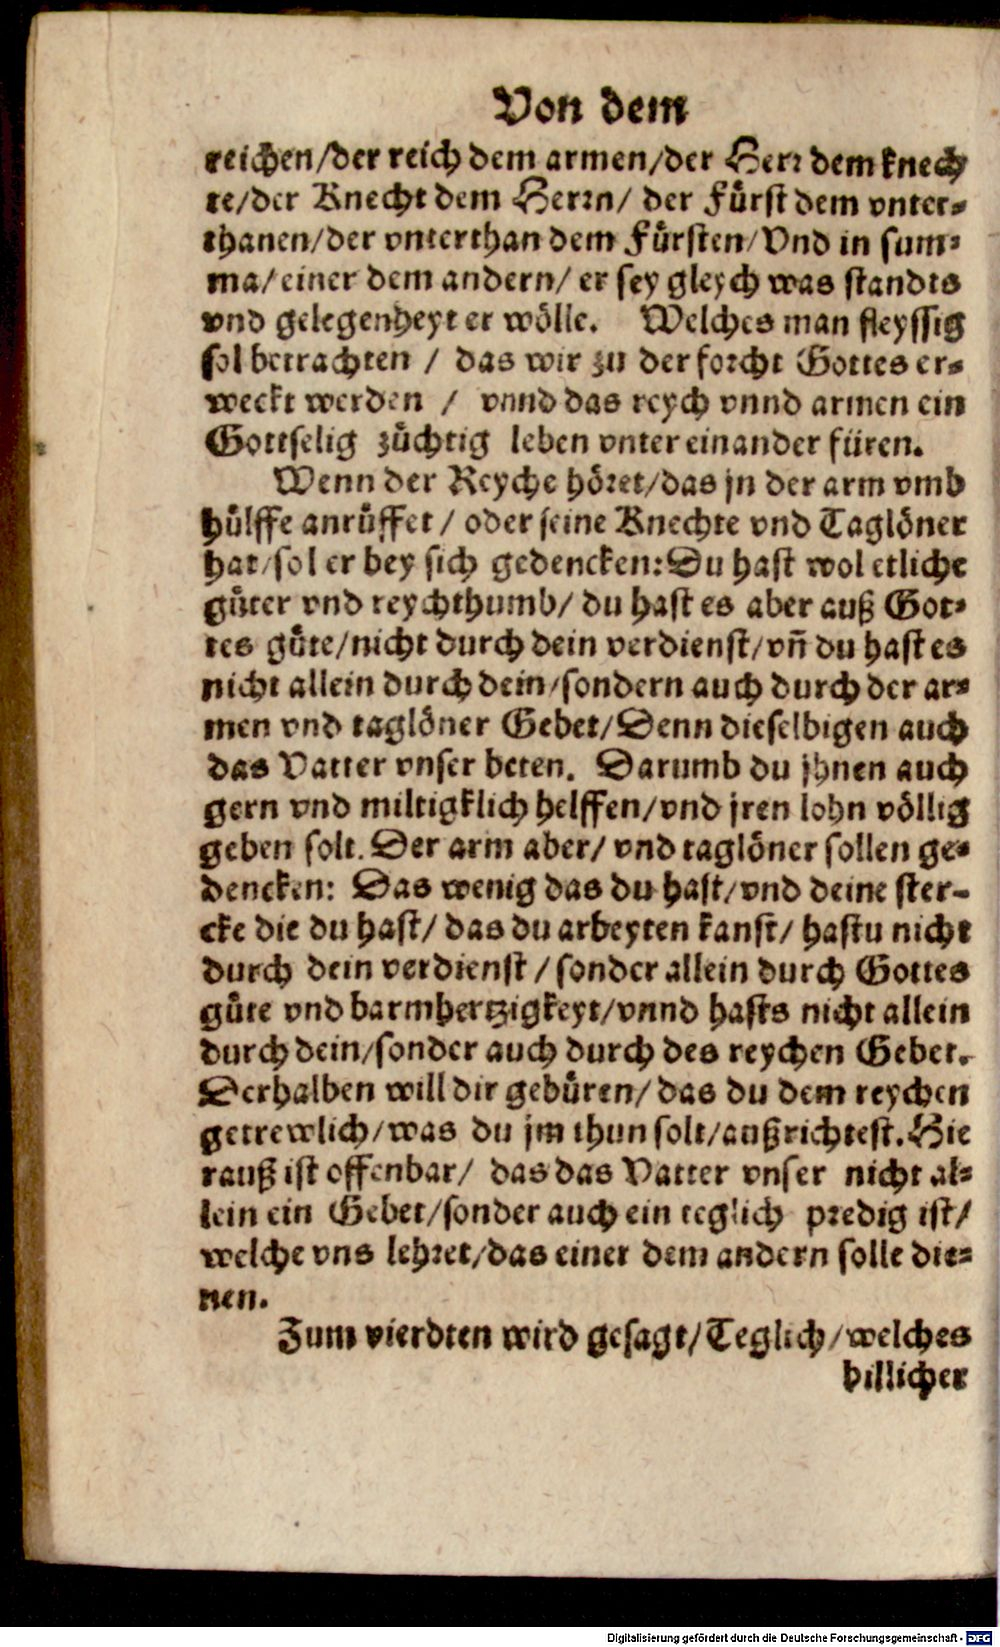 Von dem
reichen/der reich dem armen/der Herr dem knech
te/der Knecht dem Herrn/ der Fürst dem vnter-
thanen/der vnterthan dem Fürsten/Vnd in sum-
ma/ einer dem andern/ er sey gleych was standts
vnd gelegenheyt er wölle. Welches man fleyssig
sol betrachten / das wir zu der forcht Gottes er-
weckt werden / vnnd das reych vnnd armen ein
Gottselig züchtig leben vnter einander füren.
Wenn der Reyche höret/das jn der arm vmb
hülffe anrüffet / oder seine Knechte vnd Taglöner
hat/sol er bey sich gedencken: Du hast wol etliche
güter vnd reychthumb/ du hast es aber auß Got-
tes güte/nicht durch dein verdienst/vn̄ du hast es
nicht allein durch dein/sondern auch durch der ar-
men vnd taglöner Gebet/Denn dieselbigen auch
das Vatter vnser beten. Darumb du jhnen auch
gern vnd miltigklich helffen/vnd jren lohn völlig
geben solt. Der arm aber/ vnd taglöner sollen ge-
dencken: Das wenig das du hast/vnd deine ster-
cke die du hast/ das du arbeyten kanst/ hastu nicht
durch dein verdienst / sonder allein durch Gottes
güte vnd barmhertzigkeyt/vnnd hasts nicht allein
durch dein/sonder auch durch des reychen Gebet.
Derhalben will dir gebüren/ das du dem reychen
getrewlich/was du jm thun solt/außrichtest. Hie
rauß ist offenbar/ das das Vatter vnser nicht al-
lein ein Gebet/sonder auch ein teglich predig ist/
welche vns lehret/das einer dem andern solle die-
nen.
Zum vierdten wird gesagt/Teglich/welches
billicher
Digitalisierung gefördert durch die Deutsche Forschungsgemeinschaft - DFG